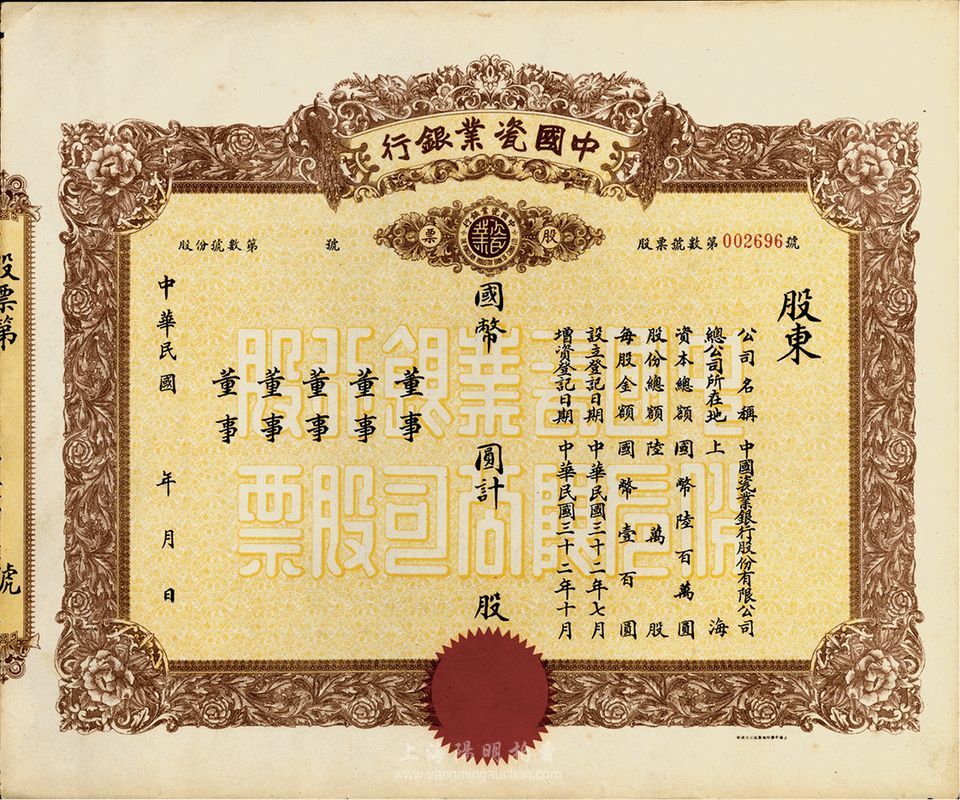 中國瓷業銀行
股票
股票號數第002696號
股份號數第 號
股東
公司名稱 中國瓷業銀行股份有限公司
總公司所在地 上海
資本總額 國幣陸百萬圓
股份總額 陸萬股
每股金額 國幣壹百圓
設立登記日期 中華民國三十二年七月
增資登記日期 中華民國三十二年十月
國幣 圓計 股
董事
董事
董事
董事
董事
中華民國 年 月 日
股票第 號
上海陽明拍賣
www.yangmingauction.com